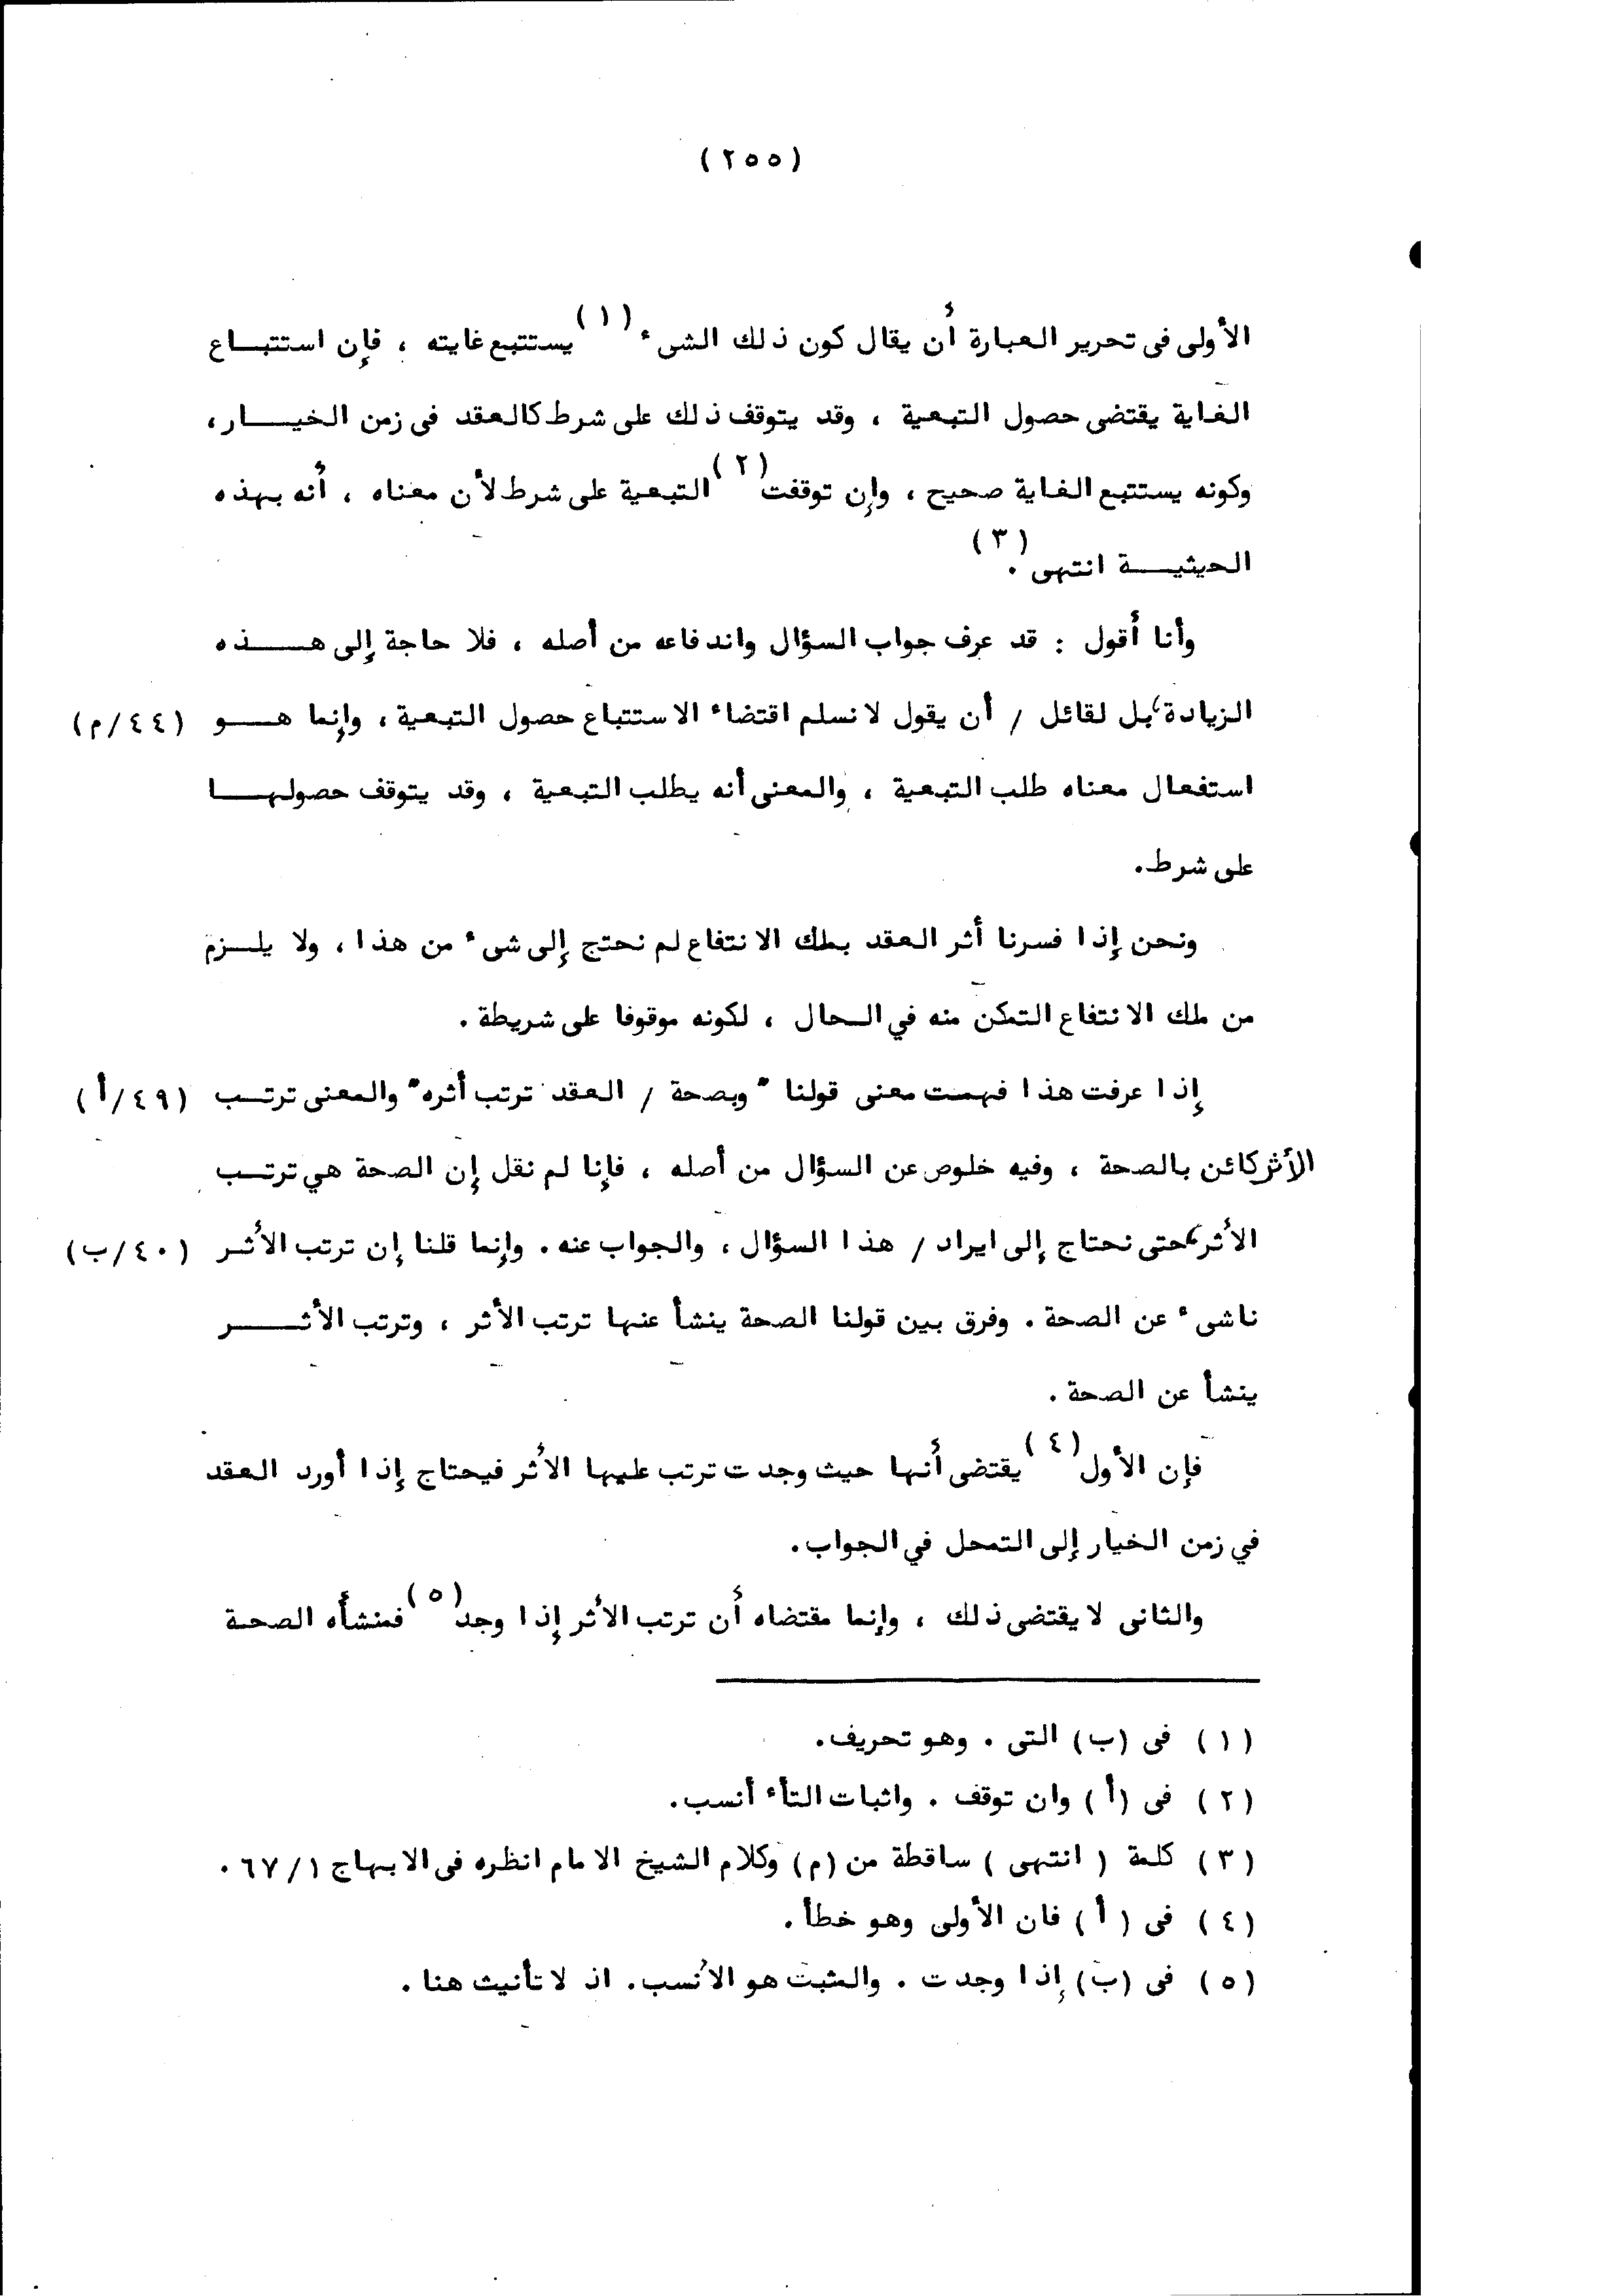 (٢٥٥)
الأولى فى تحرير العبارة أن يقال كون ذلك الشىء(١) يستتبع غايته ، فإن استتباع
الغاية يقتضى حصول التبعية ، وقد يتوقف ذلك على شرط كالعقد فى زمن الخيار،
وكونه يستتبع الغاية صحيح ، وإن توقفت(٢) التبعية على شرط لأن معناه ، أنه بهذه
الحيثية انتهى(٣).
وأنا أقول : قد عرف جواب السؤال واندفاعه من أصله ، فلا حاجة إلى هذه
الزيادة، بل لقائل / أن يقول لا نسلم اقتضاء الاستتباع حصول التبعية ، وإنما هو (٤٤/م)
استفعال معناه طلب التبعية ، والمعنى أنه يطلب التبعية ، وقد يتوقف حصولها
على شرط.
ونحن إذا فسرنا أثر العقد بملك الانتفاع لم نحتج إلى شىء من هذا ، ولا يلزم
من ملك الانتفاع التمكن منه في الحال ، لكونه موقوفا على شريطة .
إذا عرفت هذا فهمت معنى قولنا " وبصحة / العقد ترتب أثره" والمعنى ترتب (٤٩/أ)
الأثر كائن بالصحة ، وفيه خلوص عن السؤال من أصله ، فإنا لم نقل إن الصحة هي ترتب
الأثر، حتى نحتاج إلى ايراد / هذا السؤال ، والجواب عنه . وإنما قلنا إن ترتب الأثر (٤٠/ب)
ناشىء عن الصحة . وفرق بين قولنا الصحة ينشأ عنها ترتب الأثر ، وترتب الأثر
ينشأ عن الصحة .
فإن الأول(٤) يقتضى أنها حيث وجدت ترتب عليها الأثر فيحتاج إذا أورد العقد
في زمن الخيار إلى التمحل في الجواب.
والثانى لا يقتضى ذلك ، وإنما مقتضاه أن ترتب الأثر إذا وجد(٥) فمنشأه الصحة
(١) فى (ب) التى . وهو تحريف.
(٢) فى (أ) وان توقف . واثبات التاء أنسب.
(٣) كلمة ( انتهى ) ساقطة من (م) وكلام الشيخ الامام انظره فى الابهاج ٦٧/١ .
(٤) فى (أ) فان الأولى وهو خطأ .
(٥) فى (ب) إذا وجدت . والمثبت هو الأنسب. اذ لا تأنيث هنا .